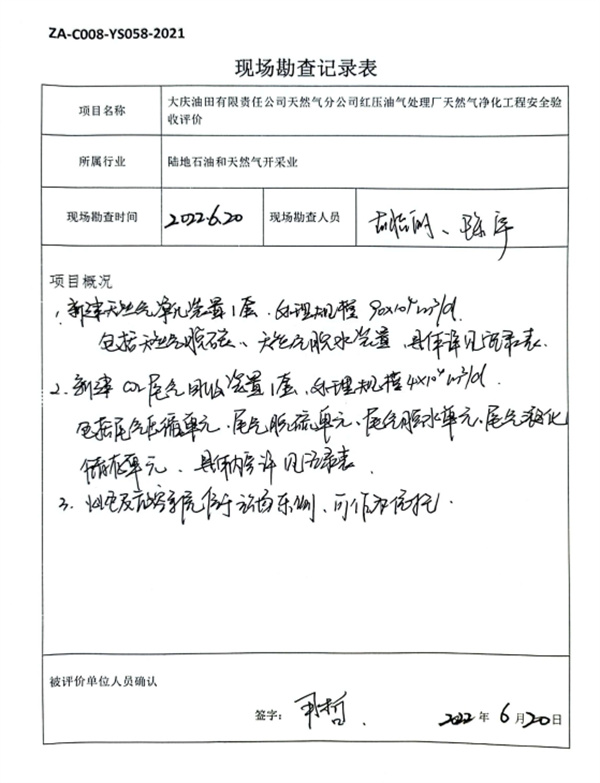 ZA-C008-YS058-2021
现场勘查记录表
项目名称
大庆油田有限责任公司天然气分公司红压油气处理厂天然气净化工程安全验
收评价
所属行业
陆地石油和天然气开采业
现场勘查时间
2022.6.20
现场勘查人员
项目概况
1. 新建天然气净化装置1套、处理规模 90×10⁴m³/d.
包括天然气脱碳、天然气脱水装置，具体详见记录表.
2. 新建 CO₂尾气回收装置1套、处理规模4×10⁴m³/d.
包括尾气压缩单元、尾气脱硫单元、尾气脱水单元、尾气液化
储存单元、具体内容详见记录表.
3. 东侧、可作为依托.
被评价单位人员确认
签字：
2022 年 6 月 20 日